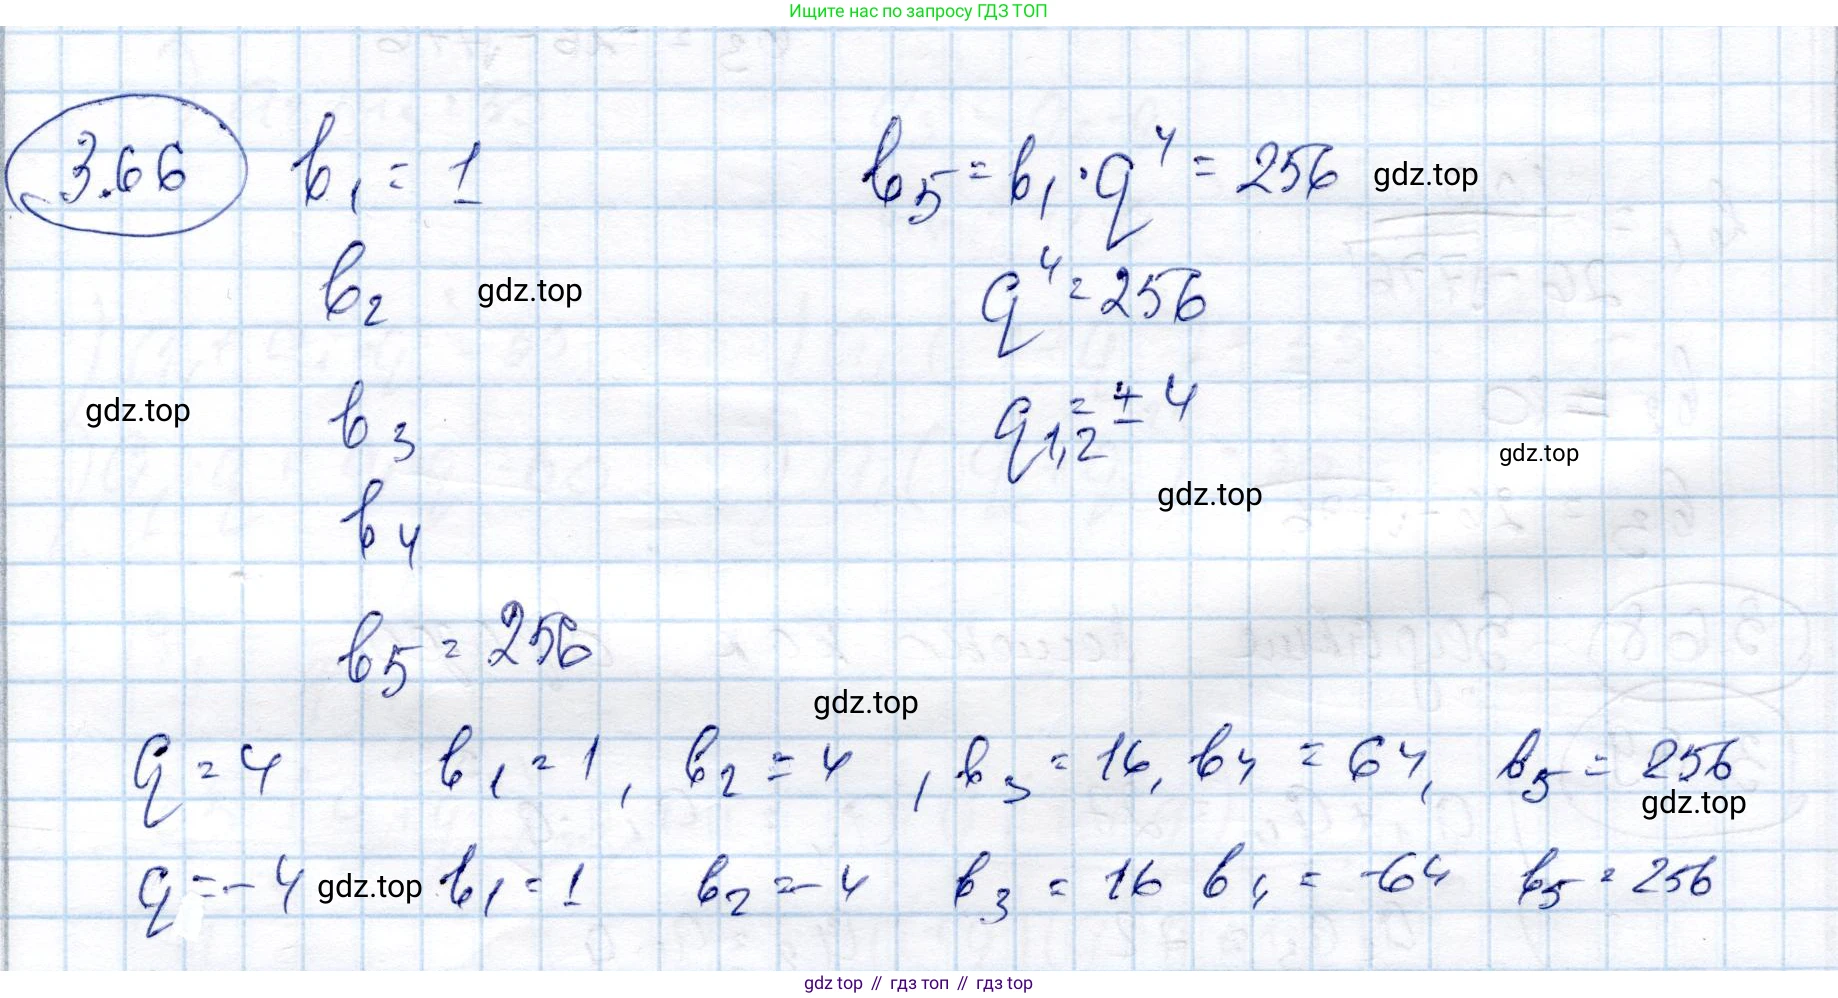 Ищите нас по запросу ГДЗ ТОП
3.66 b₁ = 1 b₅ = b₁ · q⁴ = 256 gdz.top
b₂ gdz.top q⁴ = 256
gdz.top b₃ q₁,₂ = ± 4 gdz.top
gdz.top
b₄
b₅ = 256
gdz.top
q = 4 b₁ = 1, b₂ = 4, b₃ = 16, b₄ = 64, b₅ = 256
gdz.top
q = - 4 gdz.top b₁ = 1 b₂ = - 4 b₃ = 16 b₄ = -64 b₅ = 256
gdz top // гдз топ // гдз top